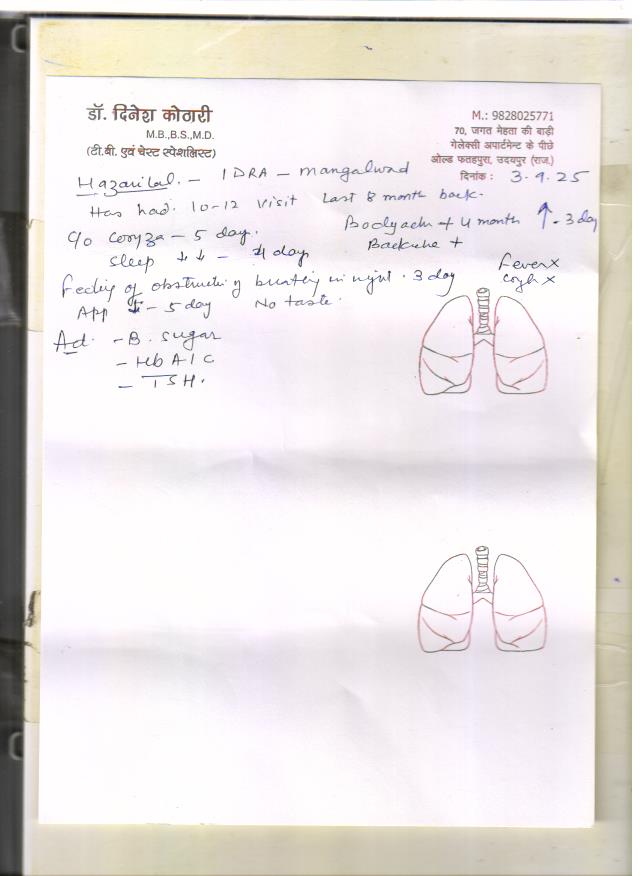 डॉ. दिनेश कोठारी
M.B.,B.S.,M.D.
(टी.बी. एवं चेस्ट स्पेशलिस्ट)
M.: 9828025771
70, जगत मेहता की बाड़ी
गेलेक्सी अपार्टमेन्ट के पीछे
ओल्ड फतहपुरा, उदयपुर (राज.)
दिनांक : 3.9.25
Hazarilal. - IDRA - Mangalwad
Has had. 10-12 visit Last 8 month back.
c/o coryza - 5 day. Bodyache + 4 month ↑ - 3 day
sleep ↓↓ - 4 day Backache + Fever x
Feeling of obstructing breathing in night . 3 day Cough x
App ↓ - 5 day No taste.
Ad. - B. sugar
- HbA1C
- TSH.